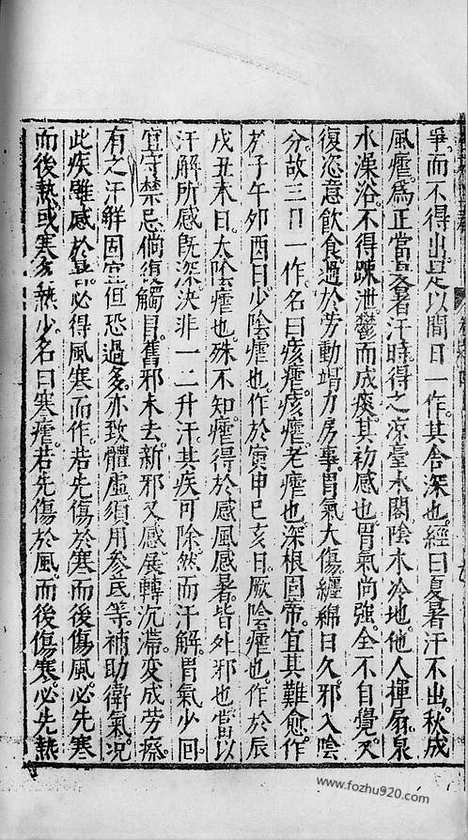 爭而不得出是以間日一作其舍深也經曰夏暑汗不出秋成
風瘧為正當夏暑汗時得之凉臺水閣陰木冷地他人揮扇泉
水澡浴不得踈泄鬱而成痰其初感也胃氣尚強全不自覺又
復恣意飲食過於勞動竭力房事胃氣大傷纏綿日久邪入陰
分故三日一作名曰痎瘧痎瘧老瘧也深根固帶宜其難愈作
於子午卯酉日少陰瘧也作於寅申巳亥日厥陰瘧也作於辰
戌丑未日太陰瘧也殊不知瘧得於感風感暑皆外邪也當以
汗解所感既深決非一二升汗其疾可除然而汗解胃氣少回
宜守禁忌倘復觸冒舊邪未去新邪又感展轉沉滯變成勞瘵
有之汗解固宜但恐過多亦致體虛須用參芪等補助衛氣况
此疾雖感於暑必得風寒而作若先傷於寒而後傷風必先寒
而後熱或寒多熱少名曰寒瘧若先傷於風而後傷寒必先熱
www.fozhu920.com